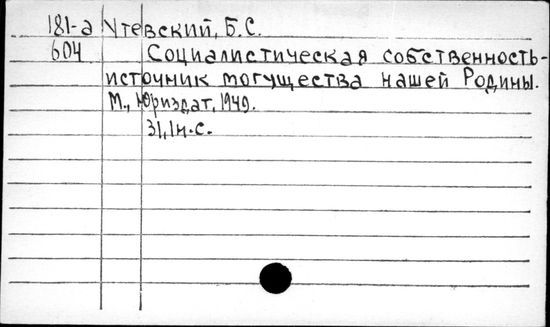 181-а Утевский, Б.С.
604 Социалистическая собственность-
источник могущества нашей Родины.
М., Юриздат, 1949.
31, 1н.с.